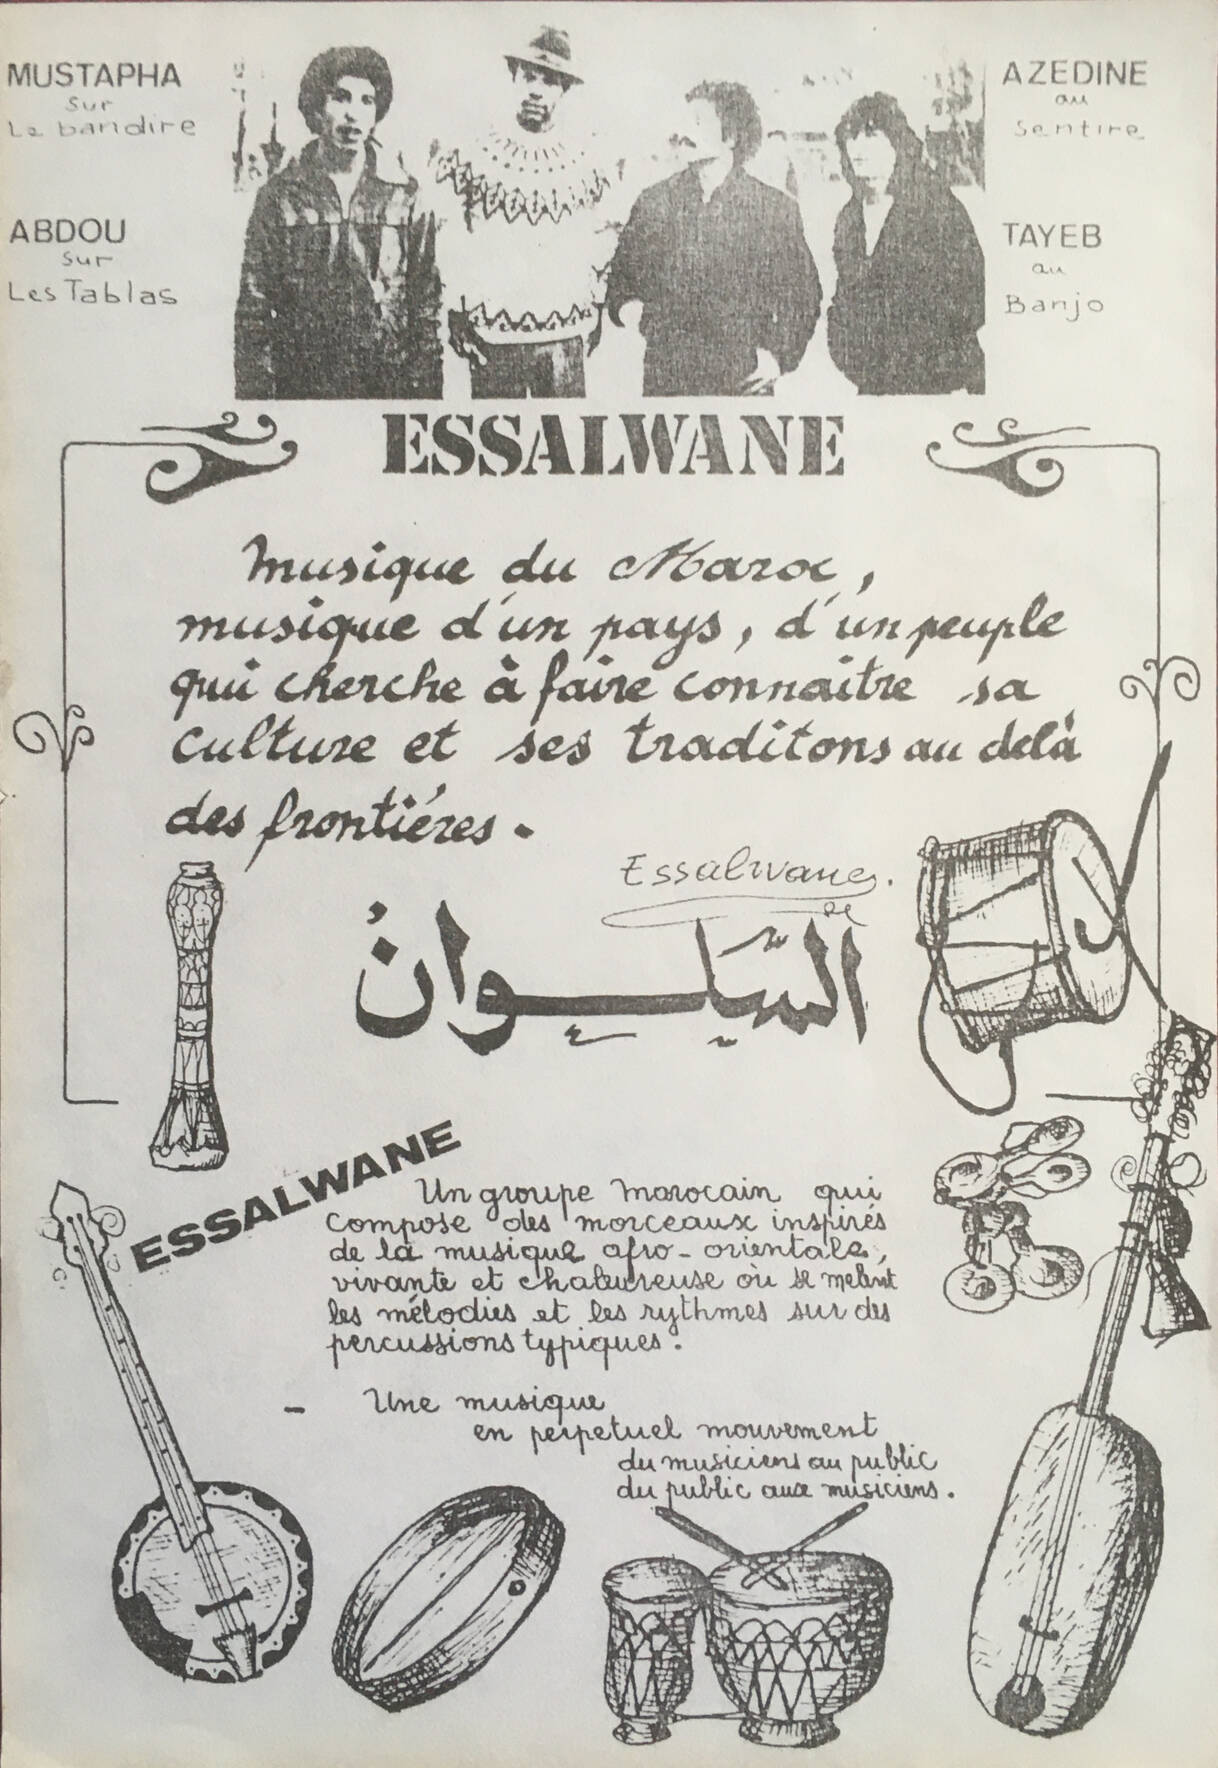 MUSTAPHA
sur
Le bandire
ABDOU
sur
Les Tablas
AZEDINE
au
Sentire
TAYEB
au
Banjo
ESSALWANE
Musique du Maroc,
musique d'un pays, d'un peuple
qui cherche à faire connaitre sa
culture et ses traditons au delà
des frontiéres.
Essalwane.
السّلوانُ
ESSALWANE
Un groupe marocain qui
compose des morceaux inspirés
de la musique afro-orientale,
vivante et chaleureuse où se melent
les mélodies et les rythmes sur des
percussions typiques.
- Une musique
en perpetuel mouvement
du musiciens au public
du public aux musiciens.